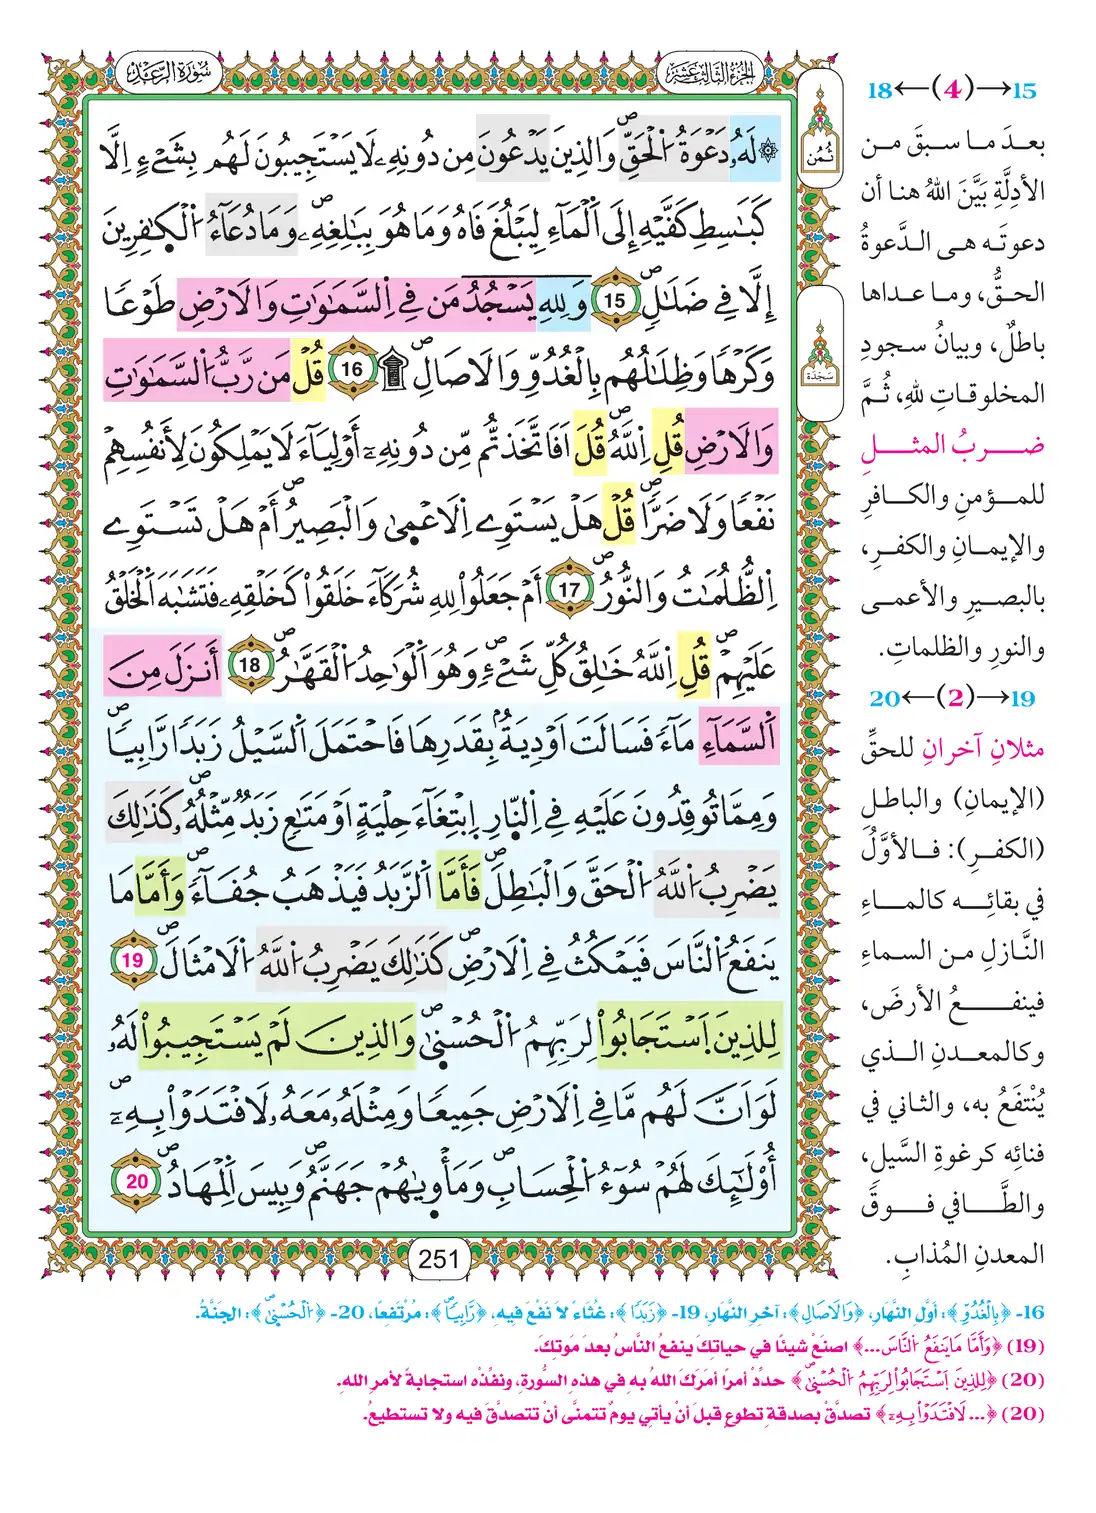 سُورَةُ الرَّعْدِ
الجُزْءُ الثَّالِثَ عَشَرَ
ثُمُن
سَجْدَة
۞ لَهُۥ دَعْوَةُ اُ۬لْحَقِّۖ وَالذِينَ يَدْعُونَ مِن دُونِهِۦ لَا يَسْتَجِيبُونَ لَهُم بِشَےْءٍ اِلَّا
كَبَٰسِطِ كَفَّيْهِ إِلَى اَ۬لْمَآءِ لِيَبْلُغَ فَاهُ وَمَا هُوَ بِبَٰلِغِهِۦۖ وَمَا دُعَآءُ اُ۬لْكٰ۪فِرِينَ
إِلَّا فِے ضَلَٰلٖۖ 15 وَلِلهِ يَسْجُدُ مَن فِے اِ۬لسَّمَٰوَٰتِ وَالَارْضِ طَوْعاٗ
وَكَرْهاٗ وَظِلَٰلُهُم بِالْغُدُوِّ وَالَاصَالِۖ ۩ 16 قُلْ مَن رَّبُّ اُ۬لسَّمَٰوَٰتِ
وَالَارْضِ قُلِ اِ۬للَّهُۖ قُلَ اَفَاتَّخَذتُّم مِّن دُونِهِۦٓ أَوْلِيَآءَ لَا يَمْلِكُونَ لِأَنفُسِهِمْ
نَفْعاٗ وَلَا ضَرّاٗۖ قُلْ هَلْ يَسْتَوِے اِ۬لَاعْم۪يٰ وَالْبَصِيرُۖ أَمْ هَلْ تَسْتَوِے
اِ۬لظُّلُمَٰتُ وَالنُّورُۖ 17 أَمْ جَعَلُواْ لِلهِ شُرَكَآءَ خَلَقُواْ كَخَلْقِهِۦ فَتَشَٰبَهَ اَ۬لْخَلْقُ
عَلَيْهِمْۖ قُلِ اِ۬للَّهُ خَٰلِقُ كُلِّ شَےْءٖۖ وَهُوَ اَ۬لْوَٰحِدُ اُ۬لْقَهَّٰرُۖ 18 أَنزَلَ مِنَ
اَ۬لسَّمَآءِ مَآءٗ فَسَالَتَ اَوْدِيَةُۢ بِقَدَرِهَا فَاحْتَمَلَ اَ۬لسَّيْلُ زَبَداٗ رَّابِياٗۖ
وَمِمَّا تُوقِدُونَ عَلَيْهِ فِے اِ۬لنّ۪ارِ اِ۪بْتِغَآءَ حِلْيَةٍ اَوْ مَتَٰعٖ زَبَدٞ مِّثْلُهُۥۖ كَذَٰلِكَ
يَضْرِبُ اُ۬للَّهُ اُ۬لْحَقَّ وَالْبَٰطِلَۖ فَأَمَّا اَ۬لزَّبَدُ فَيَذْهَبُ جُفَآءٗۖ وَأَمَّا مَا
يَنفَعُ اُ۬لنَّاسَ فَيَمْكُثُ فِے اِ۬لَارْضِۖ كَذَٰلِكَ يَضْرِبُ اُ۬للَّهُ اُ۬لَامْثَالَۖ 19
لِلذِينَ اَ۪سْتَجَابُواْ لِرَبِّهِمُ اُ۬لْحُسْن۪يٰۖ وَالذِينَ لَمْ يَسْتَجِيبُواْ لَهُۥ
لَوَ اَنَّ لَهُم مَّا فِے اِ۬لَارْضِ جَمِيعاٗ وَمِثْلَهُۥ مَعَهُۥ لَافْتَدَوْاْ بِهِۦٓۖ
أُوْلَٰٓئِكَ لَهُمْ سُوٓءُ اُ۬لْحِسَابِۖ وَمَأْو۪يٰهُمْ جَهَنَّمُۖ وَبِيسَ اَ۬لْمِهَادُۖ 20
251
15→(4)←18
بعدَ ما سبقَ من
الأدلَّةِ بَيَّنَ اللهُ هنا أن
دعوتَه هي الدَّعوةُ
الحقُّ، وما عداها
باطلٌ، وبيانُ سجودِ
المخلوقاتِ للهِ، ثُمَّ
ضربُ المثلِ
للمؤمنِ والكافرِ
والإيمانِ والكفرِ،
بالبصيرِ والأعمى
والنورِ والظلماتِ.
19→(2)←20
مثلانِ آخرانِ للحقِّ
(الإيمانِ) والباطلِ
(الكفرِ): فالأوَّلُ
في بقائِه كالماءِ
النَّازلِ من السماءِ
فينفعُ الأرضَ،
وكالمعدنِ الذي
يُنْتفَعُ به، والثاني في
فنائِه كرغوةِ السَّيلِ،
والطَّافي فوقَ
المعدنِ المُذابِ.
16- ﴿بِالْغُدُوِّ﴾: أوَّلِ النَّهارِ، ﴿وَالَاصَالِ﴾: آخرِ النَّهارِ، 19- ﴿زَبَداٗ﴾: غُثَاءً لاَ نَفْعَ فيه، ﴿رَّابِياٗۖ﴾: مُرْتفعًا، 20- ﴿اُ۬لْحُسْن۪يٰۖ﴾: الجَنَّةُ.
(19) ﴿وَأَمَّا مَا يَنفَعُ اُ۬لنَّاسَ...﴾ اصنَعْ شيئًا في حياتِكَ ينفعُ النَّاسُ بعدَ مَوتِكَ.
(20) ﴿لِلذِينَ اَ۪سْتَجَابُواْ لِرَبِّهِمُ اُ۬لْحُسْن۪يٰۖ﴾ حدِّدْ أمرًا أمَرَكَ اللهُ به في هذه السُّورةِ، ونفِّذْه استجابةً لأمرِ اللهِ.
(20) ﴿... لَافْتَدَوْاْ بِهِۦٓ﴾ تصدَّقْ بصدقةِ تطوعٍ قبلَ أنْ يأتي يومٌ تتمنَّى أنْ تتصدَّقَ فيه ولا تستطيعُ.